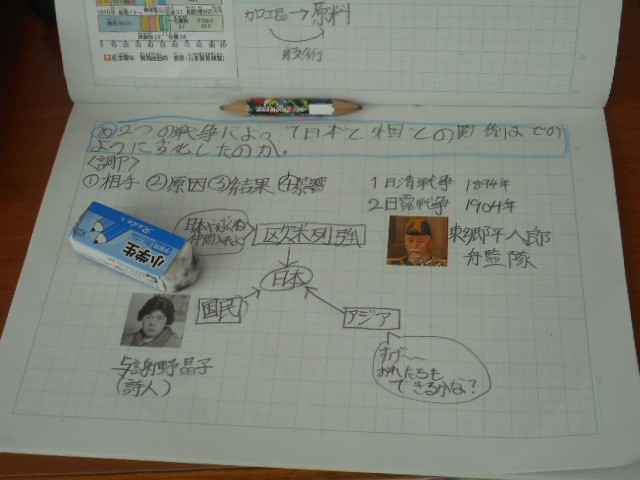 加工品→原料
技術
め 2つの戦争によって日本と外国との関係はどの
ように変化したのか。
<調ア>
①相手 ②原因 ③結果 ④影響
1 日清戦争 1894年
2 日露戦争 1904年
日本が
仲間入れよ
区欠米列強
東郷平八郎
舟監隊
日本
国民
アジア
与謝野晶子
(詩人)
すげ〜〜
おれたちも
できるかな?
小学生